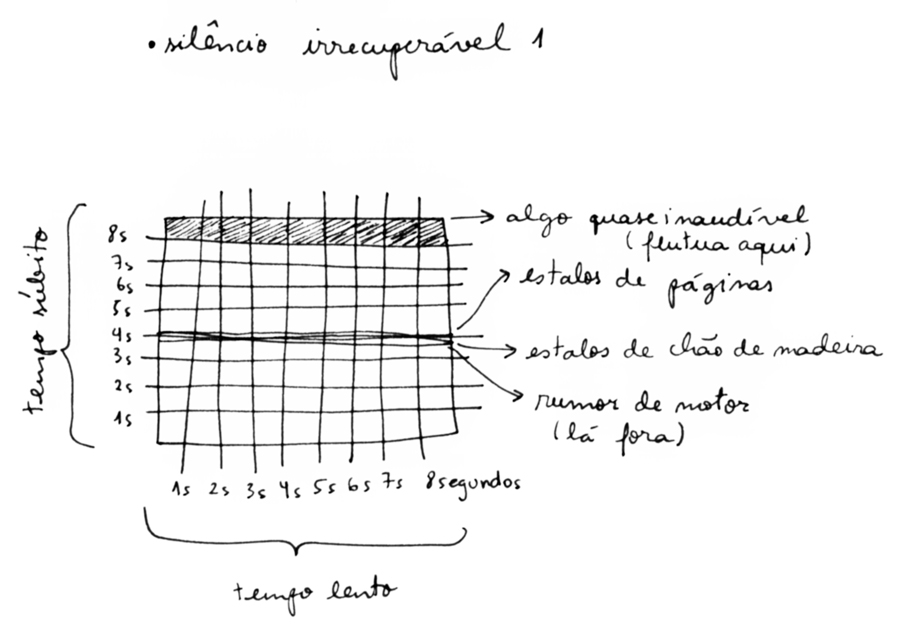 • silêncio irrecuperável 1
tempo súbito
8s
7s
6s
5s
4s
3s
2s
1s
algo quase inaudível
(flutua aqui)
estalos de páginas
estalos de chão de madeira
rumor de motor
(lá fora)
1s 2s 3s 4s 5s 6s 7s 8segundos
tempo lento